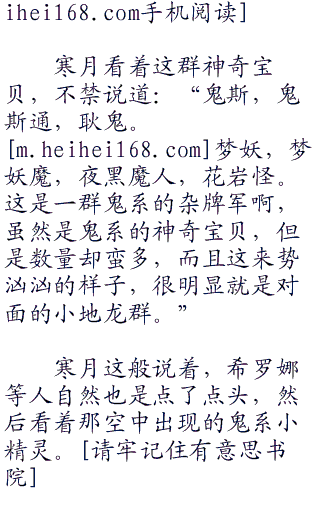 ihei168.com手机阅读]
寒月看着这群神奇宝
贝，不禁说道：“鬼斯，鬼
斯通，耿鬼。
[m.heihei168.com]梦妖，梦
妖魔，夜黑魔人，花岩怪。
这是一群鬼系的杂牌军啊，
虽然是鬼系的神奇宝贝，但
是数量却蛮多，而且这来势
汹汹的样子，很明显就是对
面的小地龙群。”
寒月这般说着，希罗娜
等人自然也是点了点头，然
后看着那空中出现的鬼系小
精灵。[请牢记住有意思书
院]